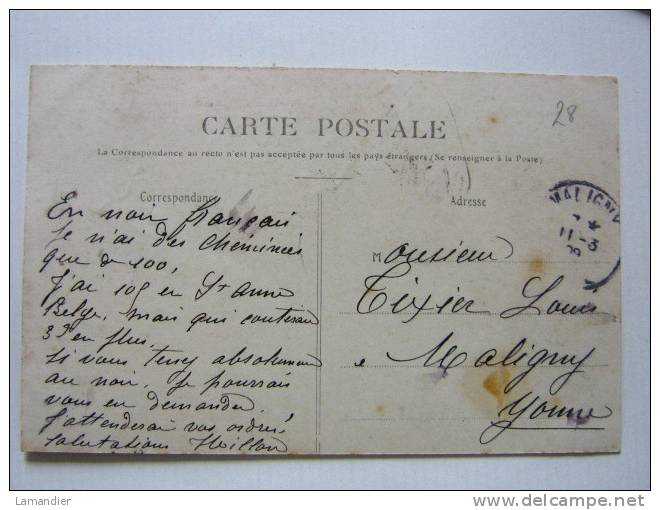 28
CARTE POSTALE
La Correspondance au recto n'est pas acceptée par tous les pays étrangers (Se renseigner à la Poste)
Correspondance
Adresse
MALIGNY
11-3
En noir français
Je n'ai des cheminées
que de 100,
J'ai 105 en Ste Anne
Belge, mais qui
3f en plus,
Si vous tenez absolument
au noir, je pourrais
vous en demander.
J'attenderai vos ordres,
Salutations
Monsieur
Tixier Louis
à Maligny
Yonne
Lamandier
www.delcampe.net